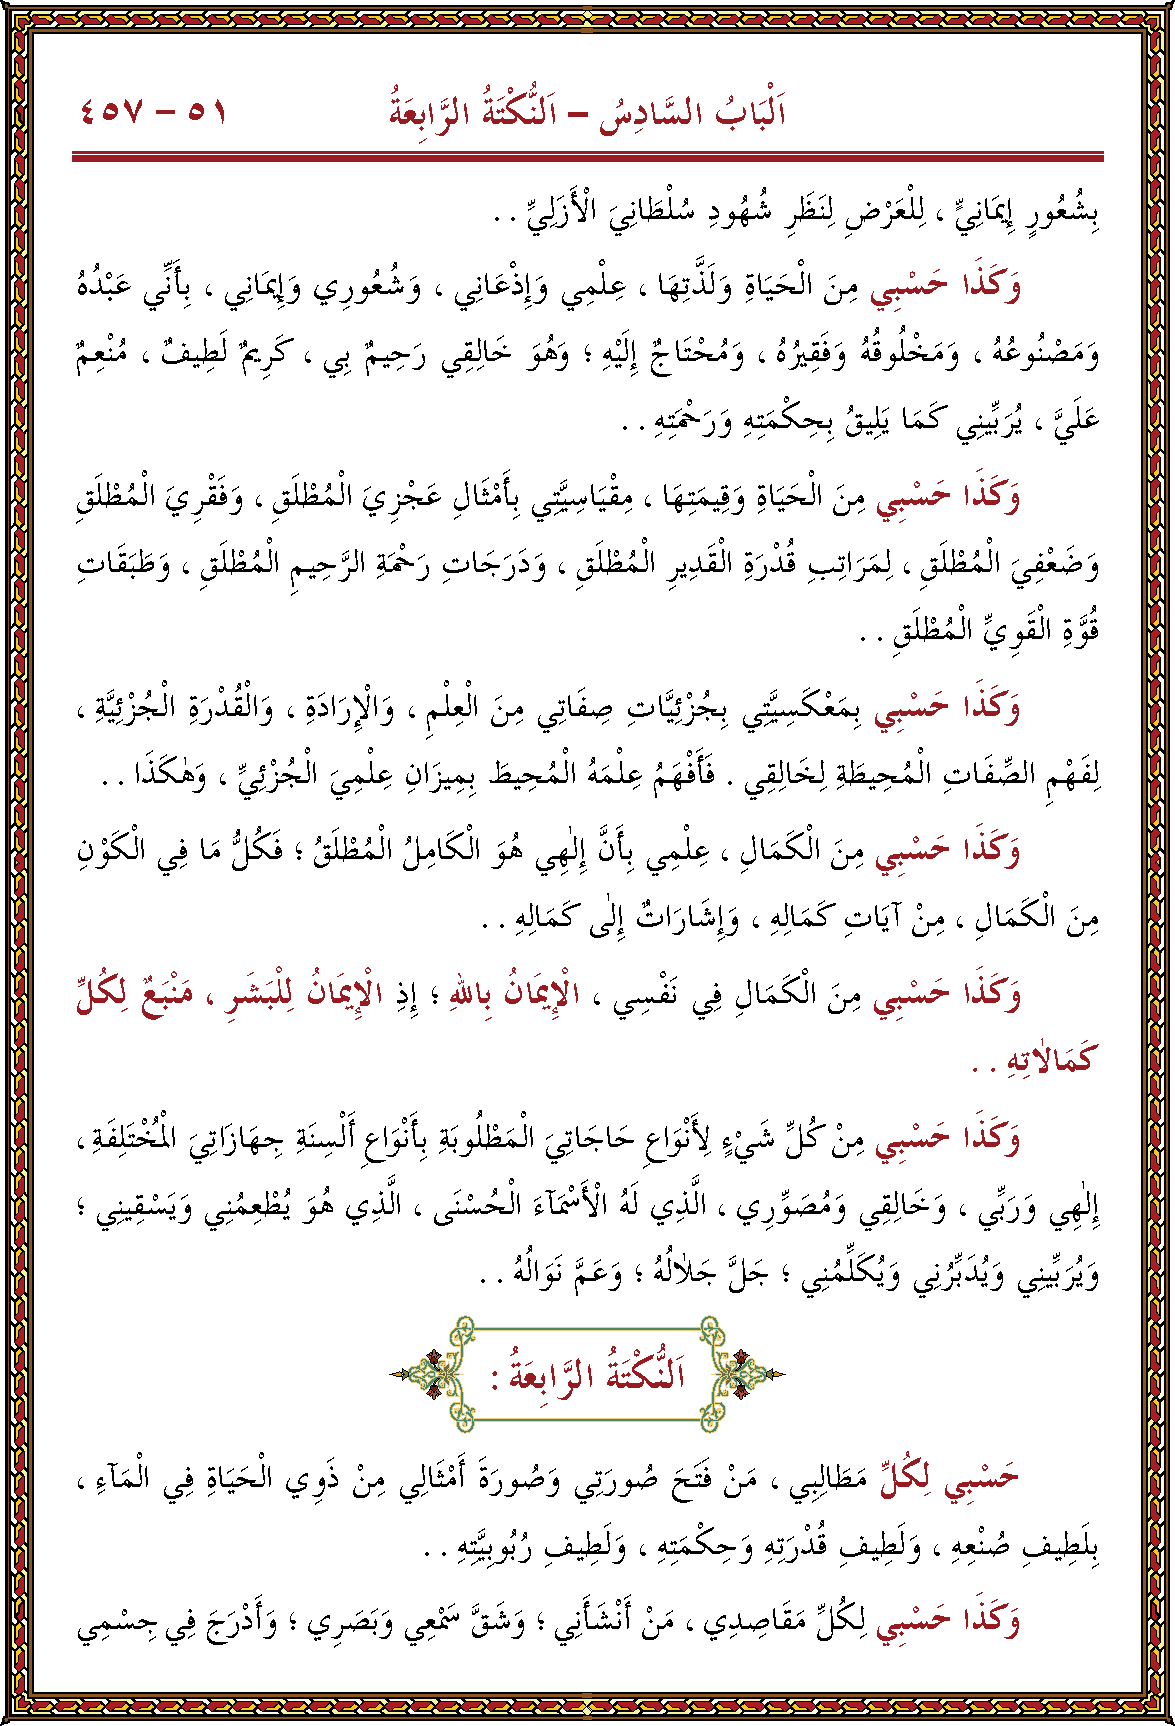 اَلْبَابُ السَّادِسُ – اَلنُّكْتَةُ الرَّابِعَةُ ٥١ – ٤٥٧
بِشُعُورٍ إِيمَانِيٍّ ، لِلْعَرْضِ لِنَظَرِ شُهُودِ سُلْطَانِيَ الْأَزَلِيِّ . .
وَكَذَا حَسْبِي مِنَ الْحَيَاةِ وَلَذَّتِهَا ، عِلْمِي وَإِذْعَانِي ، وَشُعُورِي وَإِيمَانِي ، بِأَنِّي عَبْدُهُ
وَمَصْنُوعُهُ ، وَمَخْلُوقُهُ وَفَقِيرُهُ ، وَمُحْتَاجٌ إِلَيْهِ ؛ وَهُوَ خَالِقِي رَحِيمٌ بِي ، كَرِيمٌ لَطِيفٌ ، مُنْعِمٌ
عَلَيَّ ، يُرَبِّينِي كَمَا يَلِيقُ بِحِكْمَتِهِ وَرَحْمَتِهِ . .
وَكَذَا حَسْبِي مِنَ الْحَيَاةِ وَقِيمَتِهَا ، مِقْيَاسِيَّتِي بِأَمْثَالِ عَجْزِيَ الْمُطْلَقِ ، وَفَقْرِيَ الْمُطْلَقِ
وَضَعْفِيَ الْمُطْلَقِ ، لِمَرَاتِبِ قُدْرَةِ الْقَدِيرِ الْمُطْلَقِ ، وَدَرَجَاتِ رَحْمَةِ الرَّحِيمِ الْمُطْلَقِ ، وَطَبَقَاتِ
قُوَّةِ الْقَوِيِّ الْمُطْلَقِ . .
وَكَذَا حَسْبِي بِمَعْكَسِيَّتِي بِجُزْئِيَّاتِ صِفَاتِي مِنَ الْعِلْمِ ، وَالْإِرَادَةِ ، وَالْقُدْرَةِ الْجُزْئِيَّةِ ،
لِفَهْمِ الصِّفَاتِ الْمُحِيطَةِ لِخَالِقِي . فَأَفْهَمُ عِلْمَهُ الْمُحِيطَ بِمِيزَانِ عِلْمِيَ الْجُزْئِيِّ ، وَهٰكَذَا . .
وَكَذَا حَسْبِي مِنَ الْكَمَالِ ، عِلْمِي بِأَنَّ إِلٰهِي هُوَ الْكَامِلُ الْمُطْلَقُ ؛ فَكُلُّ مَا فِي الْكَوْنِ
مِنَ الْكَمَالِ ، مِنْ آيَاتِ كَمَالِهِ ، وَإِشَارَاتٌ إِلٰى كَمَالِهِ . .
وَكَذَا حَسْبِي مِنَ الْكَمَالِ فِي نَفْسِي ، الْإِيمَانُ بِاللهِ ؛ إِذِ الْإِيمَانُ لِلْبَشَرِ ، مَنْبَعٌ لِكُلِّ
كَمَالَاتِهِ . .
وَكَذَا حَسْبِي مِنْ كُلِّ شَيْءٍ لِأَنْوَاعِ حَاجَاتِيَ الْمَطْلُوبَةِ بِأَنْوَاعِ أَلْسِنَةِ جِهَازَاتِيَ الْمُخْتَلِفَةِ ،
إِلٰهِي وَرَبِّي ، وَخَالِقِي وَمُصَوِّرِي ، الَّذِي لَهُ الْأَسْمَآءَ الْحُسْنَى ، الَّذِي هُوَ يُطْعِمُنِي وَيَسْقِينِي ؛
وَيُرَبِّينِي وَيُدَبِّرُنِي وَيُكَلِّمُنِي ؛ جَلَّ جَلَالُهُ ؛ وَعَمَّ نَوَالُهُ . .
اَلنُّكْتَةُ الرَّابِعَةُ :
حَسْبِي لِكُلِّ مَطَالِبِي ، مَنْ فَتَحَ صُورَتِي وَصُورَةَ أَمْثَالِي مِنْ ذَوِي الْحَيَاةِ فِي الْمَآءِ ،
بِلَطِيفِ صُنْعِهِ ، وَلَطِيفِ قُدْرَتِهِ وَحِكْمَتِهِ ، وَلَطِيفِ رُبُوبِيَّتِهِ . .
وَكَذَا حَسْبِي لِكُلِّ مَقَاصِدِي ، مَنْ أَنْشَأَنِي ؛ وَشَقَّ سَمْعِي وَبَصَرِي ؛ وَأَدْرَجَ فِي جِسْمِي